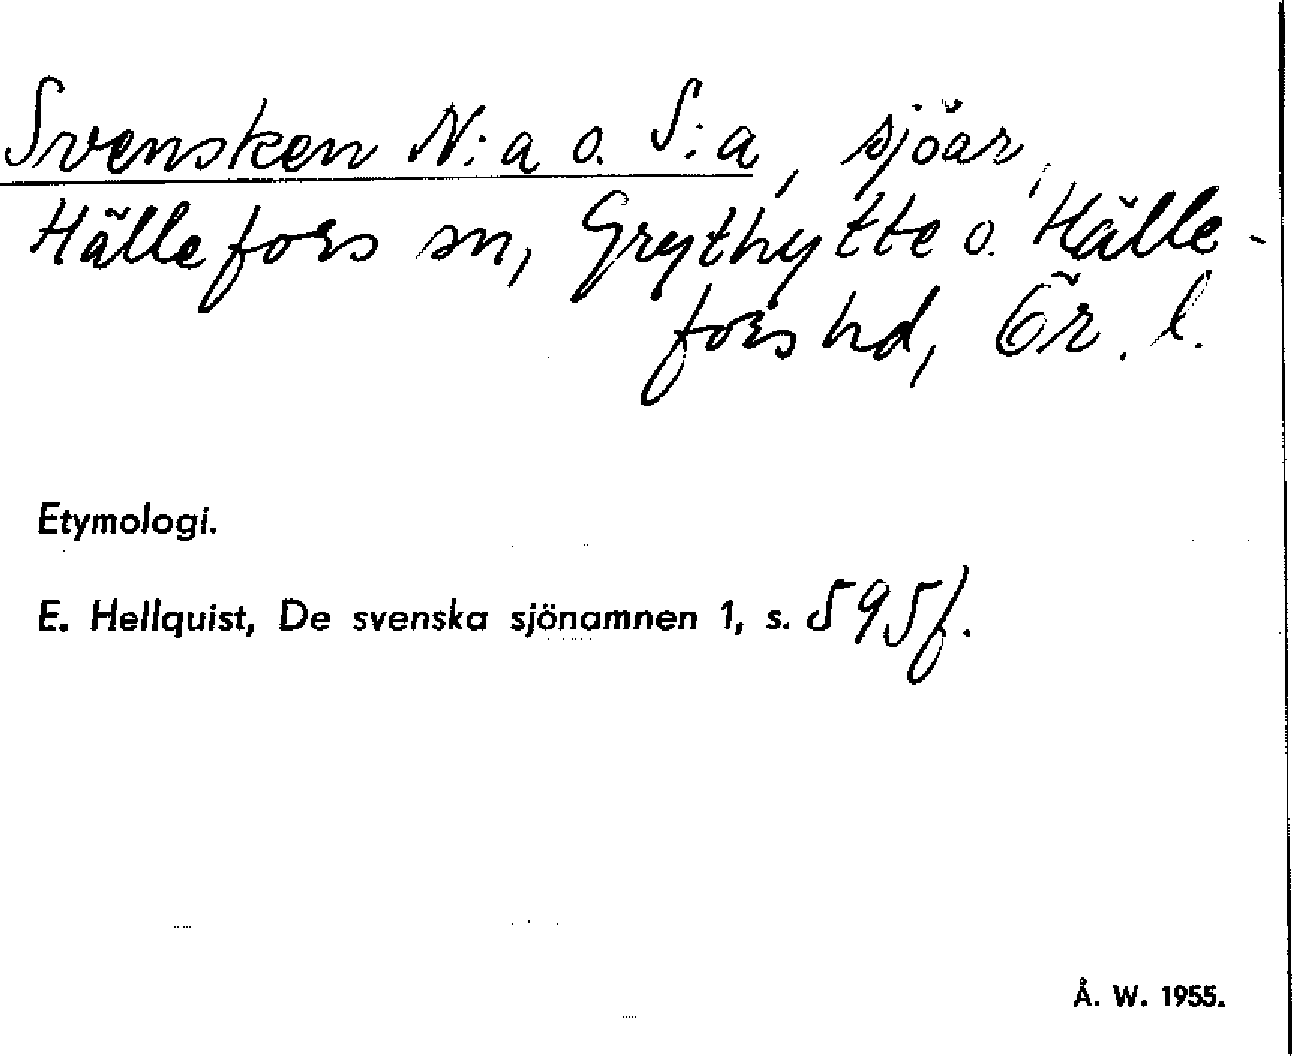 Svensken N:a o. S:a, sjöar,
Hällefors sn, Grythytte o. Hälle-
fors hd, Ör. l.
Etymologi.
E. Hellquist, De svenska sjönamnen 1, s. 595 f.
Å. W. 1955.